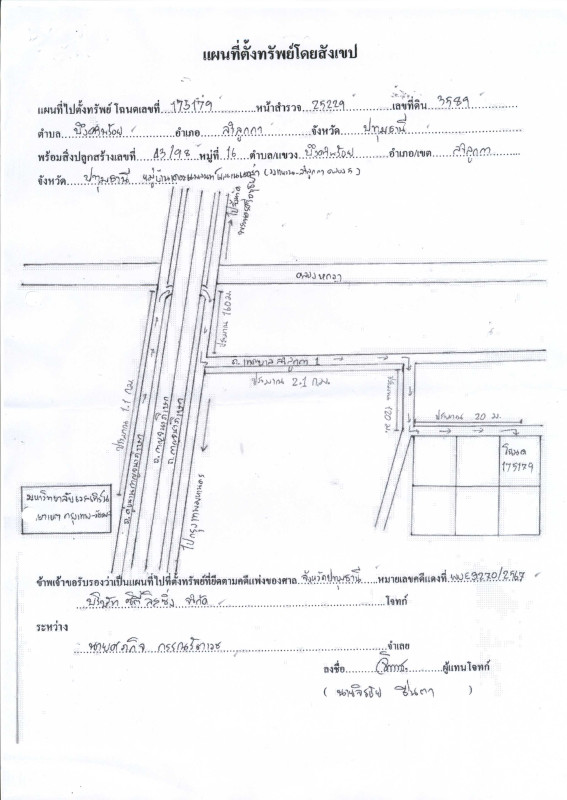 แผนที่ตั้งทรัพย์โดยสังเขป
แผนที่ไปตั้งทรัพย์ โฉนดเลขที่ 173179 หน้าสำรวจ 25229 เลขที่ดิน 3589
ตำบล บึงคำพร้อย อำเภอ ลำลูกกา จังหวัด ปทุมธานี
พร้อมสิ่งปลูกสร้างเลขที่ 43/98 หมู่ที่ 16 ตำบล/แขวง บึงคำพร้อย อำเภอ/เขต ลำลูกกา
จังหวัด ปทุมธานี หมู่บ้าน (วงแหวน-ลำลูกกา คลอง 5)
ไปบางปะอิน
คลองหกวา
ประมาณ 160 ม.
ถ. เทศบาลลำลูกกา 1
ประมาณ 2.1 กม.
ประมาณ 1.1 กม.
ประมาณ 120 ม.
ประมาณ 20 ม.
ถ. กาญจนาภิเษก
ถ. กาญจนาภิเษก
โฉนด
173179
มหาวิทยาลัยเวสเทิร์น
ไปกรุงเทพมหานคร
ข้าพเจ้าขอรับรองว่าเป็นแผนที่ไปที่ตั้งทรัพย์ที่ยึดตามคดีแพ่งของศาล จังหวัดปทุมธานี หมายเลขคดีแดงที่ ผบE9270/2567
บริษัท จำกัด โจทก์
ระหว่าง
นายศุภกิจ จำเลย
ลงชื่อ ผู้แทนโจทก์